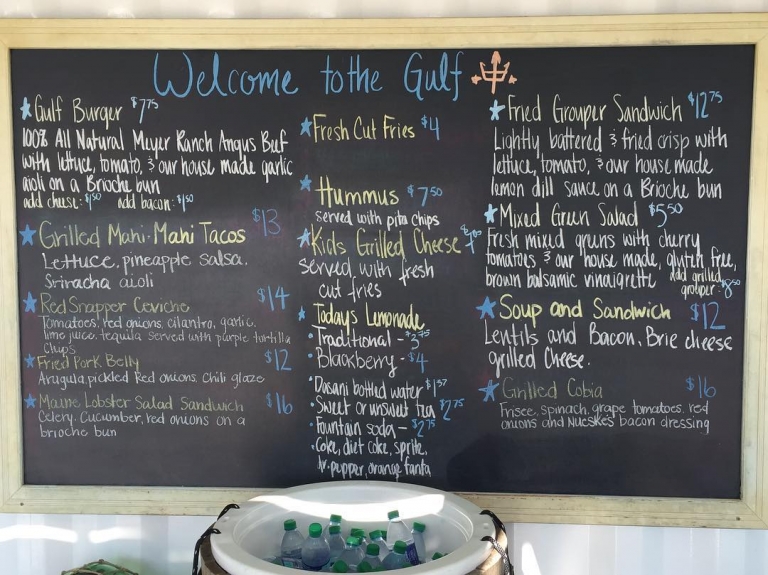 Welcome to the Gulf
Gulf Burger $7.75
100% All Natural Meyer Ranch Angus Beef
with lettuce, tomato, & our house made garlic
aioli on a Brioche bun
add cheese: $1.50 add bacon: $1.50
Grilled Mahi-Mahi Tacos $13
Lettuce, pineapple salsa.
Sriracha aioli
Red Snapper Ceviche $14
Tomatoes, red onions, cilantro, garlic,
lime juice, tequila served with purple tortilla
Chips
Fried Pork Belly $12
Arugula, pickled Red onions. Chili glaze
Maine Lobster Salad Sandwich $16
Celery, Cucumber, red onions on a
brioche bun
Fresh Cut Fries $4
Hummus $7.50
served with pita chips
Kids Grilled Cheese
served with fresh
cut fries
Todays Lemonade
Traditional - $3.75
Blackberry - $4
Dasani bottled water
Sweet or unsweet tea $2.75
Fountain soda - $2.75
Coke, diet coke, sprite,
Dr. pepper, orange fanta
Fried Grouper Sandwich $12.75
Lightly battered & fried crisp with
lettuce, tomato, & our house made
lemon dill sauce on a Brioche bun
Mixed Green Salad $5.50
Fresh mixed greens with cherry
tomatoes & our house made, gluten free,
brown balsamic vinaigrette add grilled
grouper: $8.50
Soup and Sandwich $12
Lentils and Bacon, Brie cheese
grilled Cheese.
Grilled Cobia $16
Frisee, spinach, grape tomatoes, red
onions and Nueskes bacon dressing